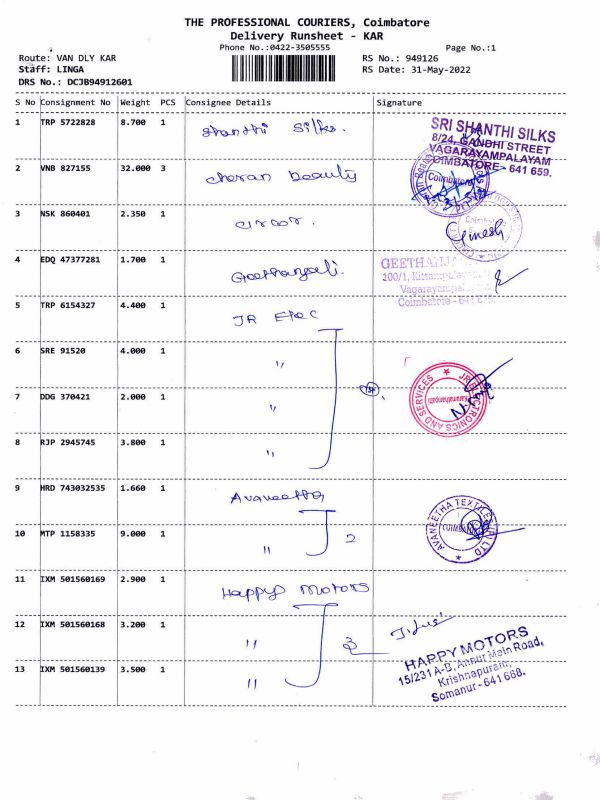 THE PROFESSIONAL COURIERS, Coimbatore
Delivery Runsheet - KAR
Phone No.:0422-3505555 Page No.:1
Route: VAN DLY KAR RS No.: 949126
Staff: LINGA RS Date: 31-May-2022
DRS No.: DCJB94912601
S No Consignment No Weight PCS Consignee Details Signature
1 TRP 5722828 8.700 1 Shanthi Silks.
SRI SHANTHI SILKS
8/24, GANDHI STREET
VAGARAYAMPALAYAM
COIMBATORE - 641 659.
2 VNB 827155 32.000 3 Cheran Beauty
Coimbatore
3 NSK 860401 2.350 1
Ginesh
4 EDQ 47377281 1.700 1 Geethanjali.
Vagarayampal
Coimbatore - 641
5 TRP 6154327 4.400 1 JR Elec
6 SRE 91520 4.000 1 "
7 DDG 370421 2.000 1 "
JR ELECTRONICS AND SERVICES
8 RJP 2945745 3.800 1 "
9 HRD 743032535 1.660 1 Avaneetha
AVANEETHA TEXTILES (P) LTD
10 MTP 1158335 9.000 1 " 2
11 IXM 501560169 2.900 1 Happy Motors
12 IXM 501560168 3.200 1 " 3
13 IXM 501560139 3.500 1 "
HAPPY MOTORS
15/231 A-B, Annur Main Road,
Krishnapuram,
Somanur - 641 668.